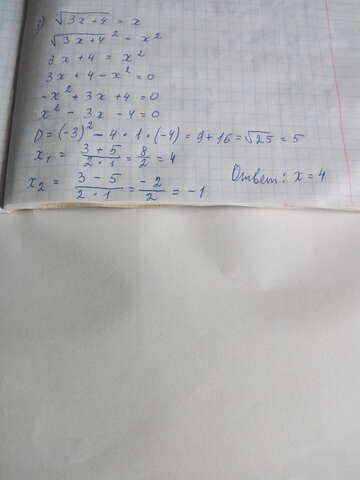 3) √3x+4 = x
√3x+4² = x²
3x+4 = x²
3x+4-x²=0
-x²+3x+4=0
x²-3x-4=0
D=(-3)²-4·1·(-4)=9+16=√25=5
x₁ = 3+5/2·1 = 8/2 = 4
x₂ = 3-5/2·1 = -2/2 = -1
Ответ: x=4